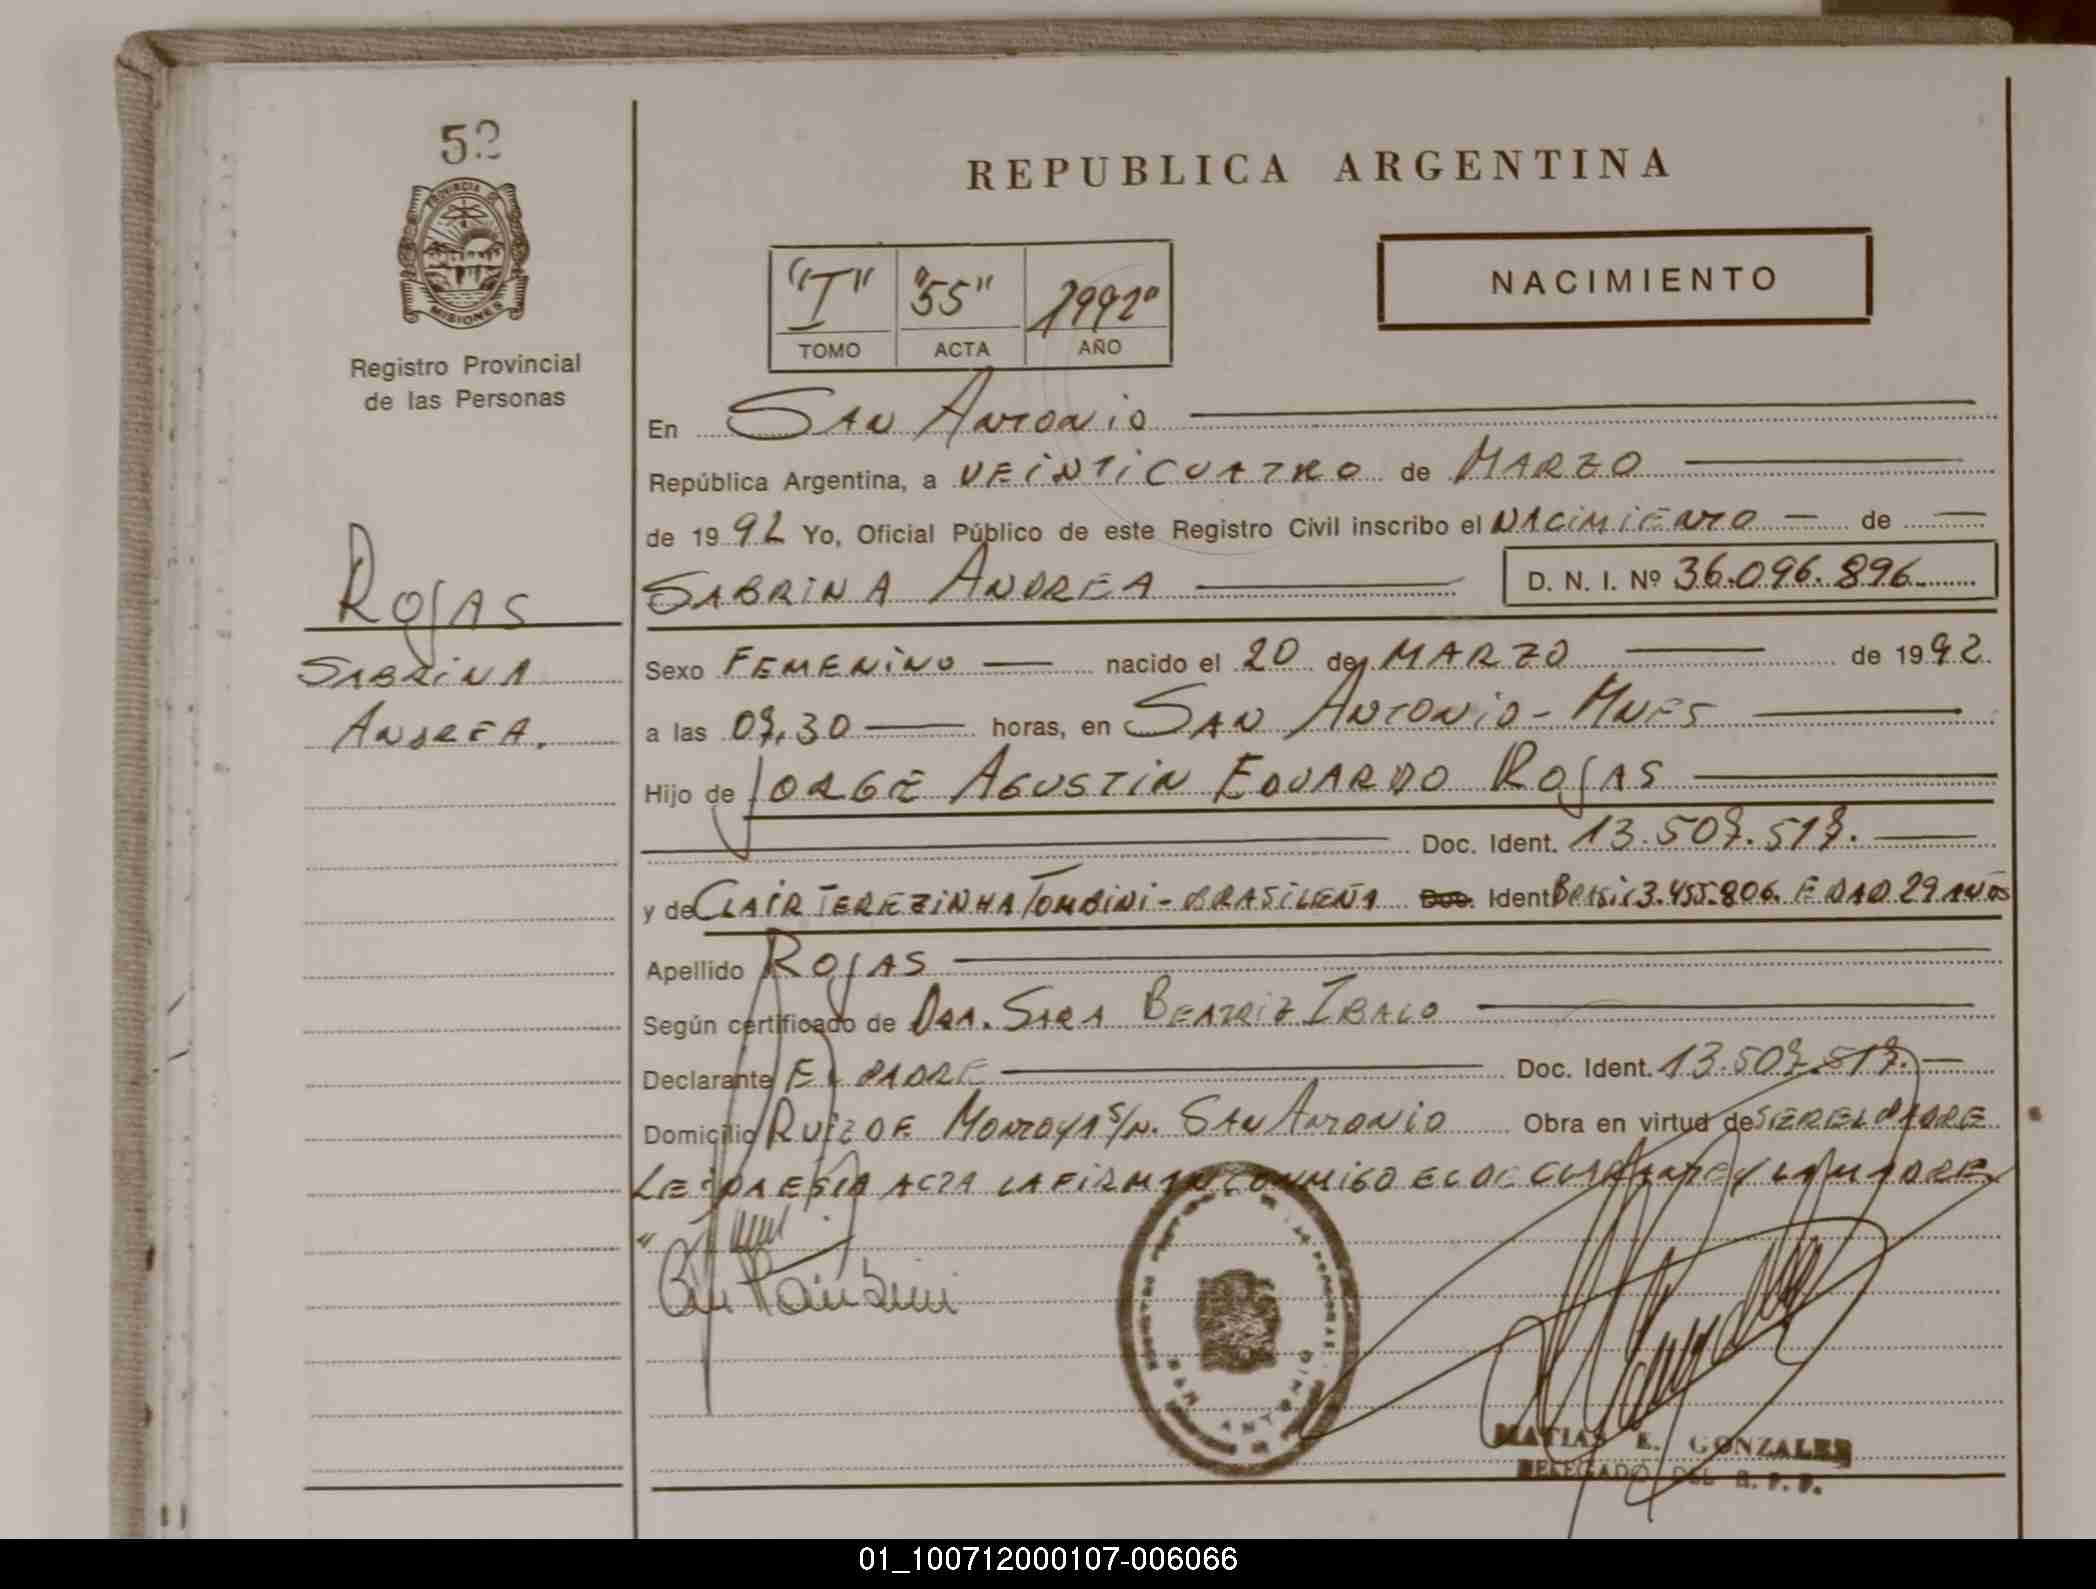 52
PROVINCIA DE
MISIONES
Registro Provincial
de las Personas
ROJAS
SABRINA
ANDREA.
REPUBLICA ARGENTINA
NACIMIENTO
"I" "55" 1992"
TOMO ACTA AÑO
En SAN ANTONIO
República Argentina, a VEINTICUATRO de MARZO
de 1992 Yo, Oficial Público de este Registro Civil inscribo el NACIMIENTO — de —
SABRINA ANDREA D. N. I. Nº 36.096.896
Sexo FEMENINO — nacido el 20 de MARZO de 1992.
a las 07,30 — horas, en SAN ANTONIO - MNES
Hijo de JORGE AGUSTIN EDUARDO ROJAS
Doc. Ident. 13.507.517.
y de CLAIR TEREZINHA TOMBINI - BRASILEÑA Doc. Ident 3.455.806. EDAD 29 AÑOS
Apellido ROJAS
Según certificado de DRA. SARA BEATRIZ IBALO
Declarante EL PADRE Doc. Ident. 13.507.517. —
Domicilio RUIZ DE MONTOYA S/N. SAN ANTONIO Obra en virtud de SER EL PADRE
LEIDA ESTA ACTA LA FIRMAN CONMIGO EL DECLARANTE Y LA MADRE
SAN ANTONIO
MATIAS E. GONZALEZ
DELEGADO DEL R. P. P.
01_100712000107-006066